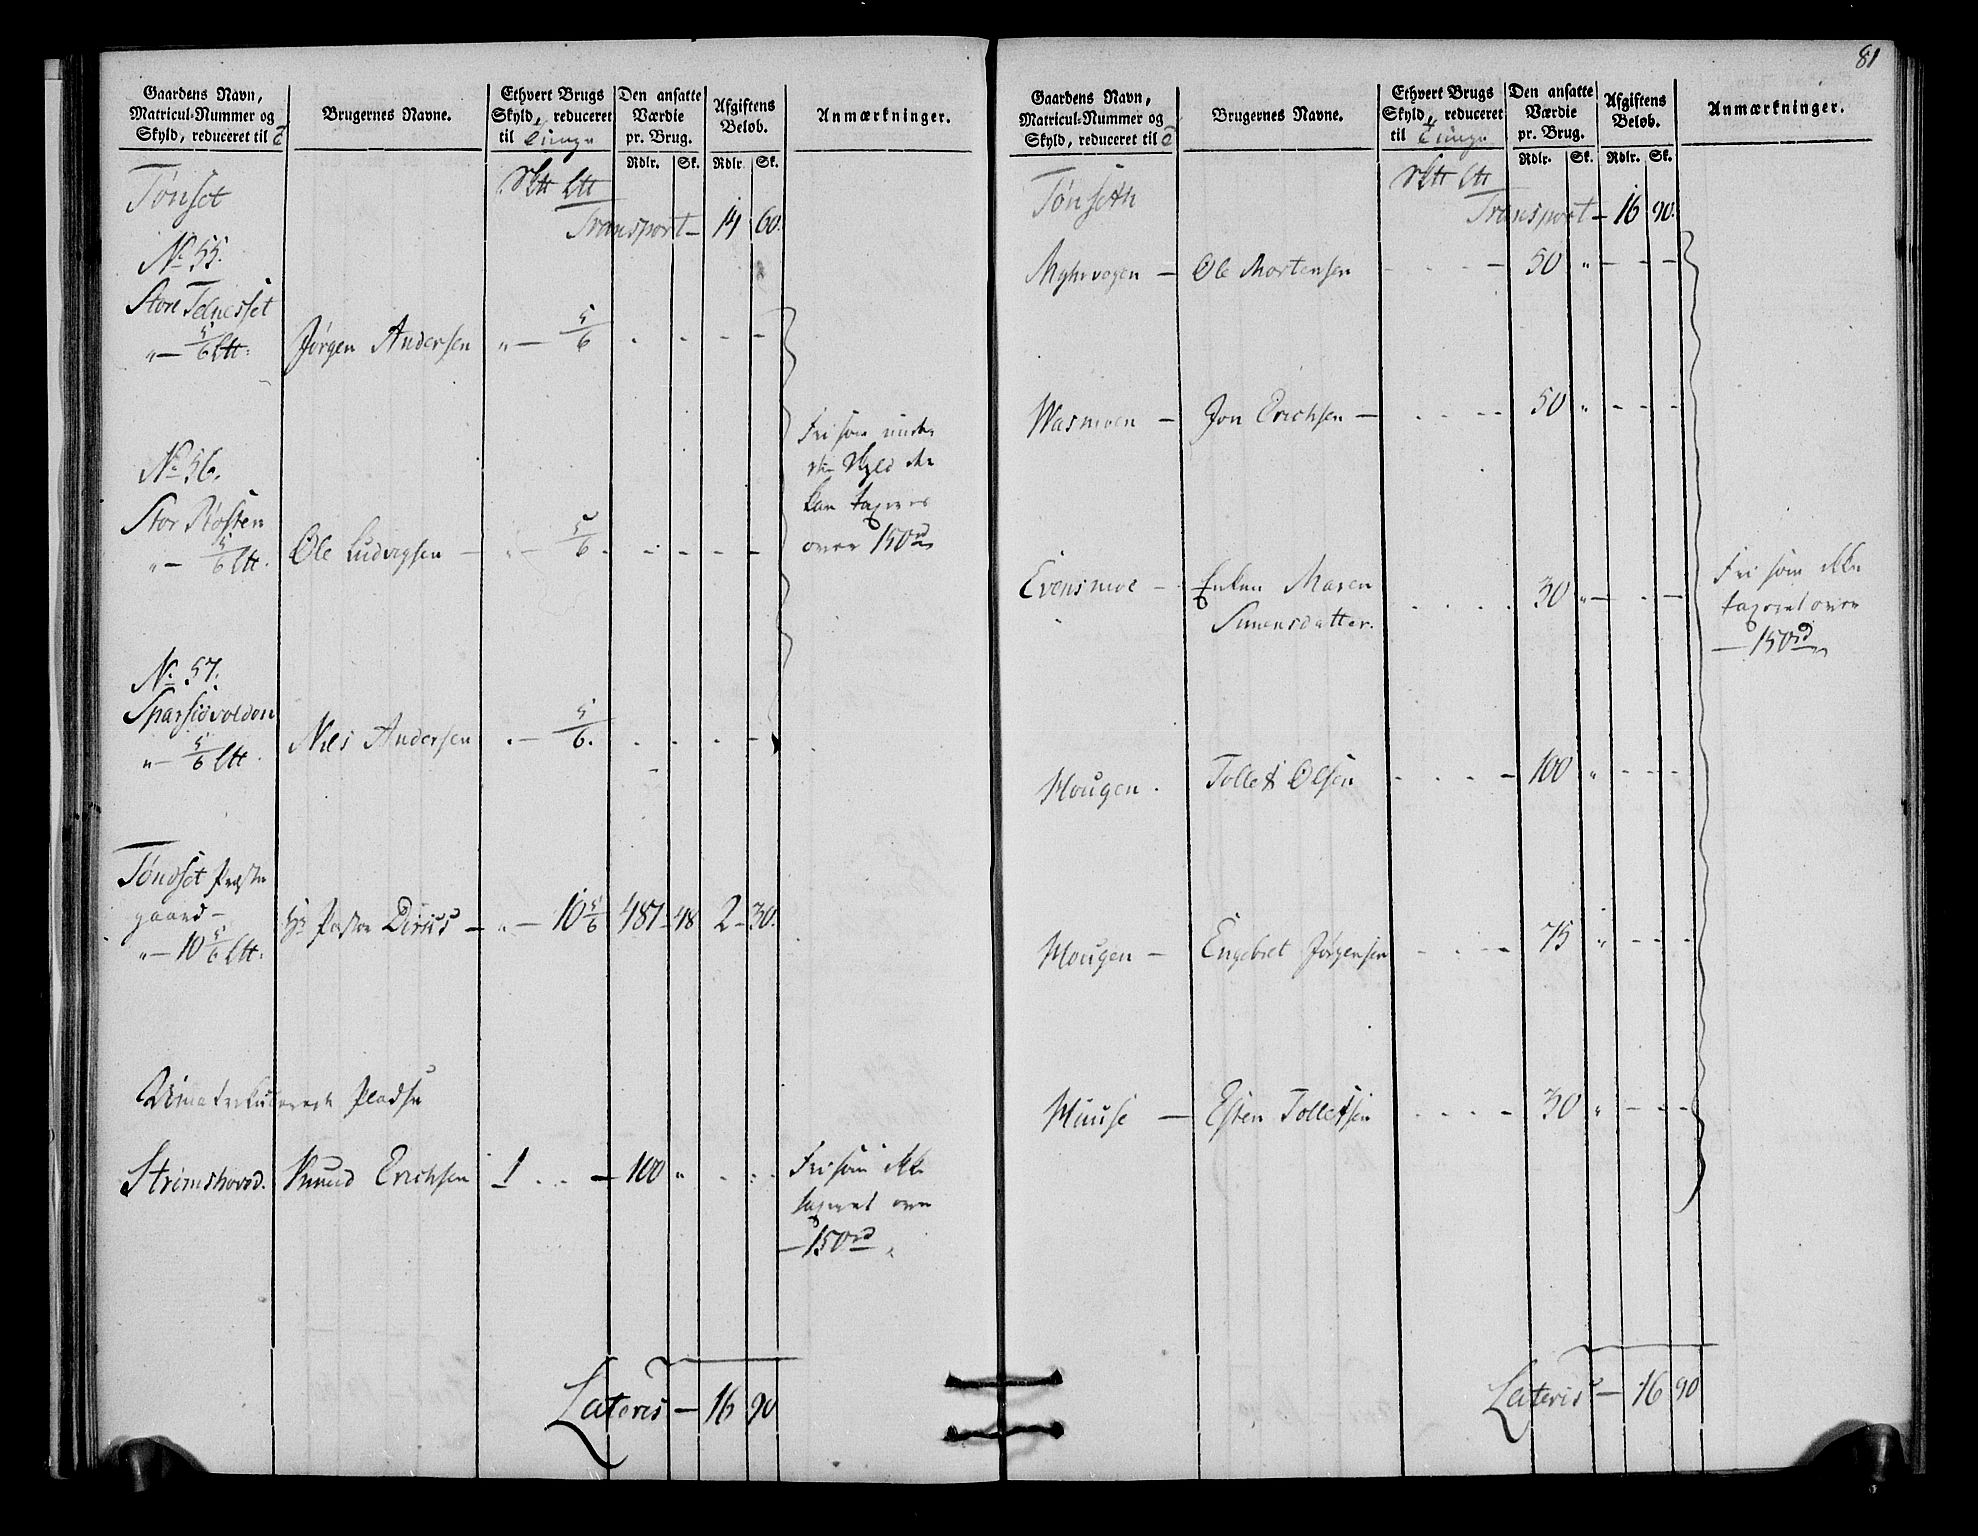 81
Gaardens Navn,
Matricul-Nummer og
Skyld, reduceret til
Brugernes Navne.
Ethvert Brugs
Skyld, reduceret
til Tunge
Den ansatte
Værdie
pr. Brug.
Afgiftens
Beløb.
Anmærkninger.
Rdlr. Sk. Rdlr. Sk.
Tønset
Transport - 14 60.
No 55.
Store Telnesset
„ - 5/6 Ltt. Jørgen Andersen „ - 5/6
No 56.
Stor Røsten
„ - 5/6 Ltt. Ole Ludvigsen - „ - 5/6
Fri som
Skyld
kan taxeres
over 150 rd
No 57.
Sparsiøvolden
„ - 5/6 Ltt. Niels Andersen - 5/6.
Tøndset Præste
gaard -
„ - 10 5/6 Ltt. Hr Pastor - „ - 10 5/6 487 - 48 2 - 30.
Umatriculerede Pladse
Strømshoved. Knud Erichsen 1 - 100 „
Fri som ikke
taxeret over
- 150 rd „
Lateris - 16 90
Gaardens Navn,
Matricul-Nummer og
Skyld, reduceret til
Brugernes Navne.
Ethvert Brugs
Skyld, reduceret
til Tunge
Den ansatte
Værdie
pr. Brug.
Afgiftens
Beløb.
Anmærkninger.
Rdlr. Sk. Rdlr. Sk.
Tønseth
Transport - 16 90.
Myhrvogen - Ole Mortensen - 50 „
Wasmoen - Jon Erichsen - 50 „
Evensmoe - Enken Maren
Simensdatter. 30 „
Fri som ikke
taxeret over
- 150 rd „
Hougen. Tollef Olsen - 100 „
Hougen - Engebret Jørgensen - 75 „
Huuse - Esten Tollefsen - 30 „
Lateris - 16 90